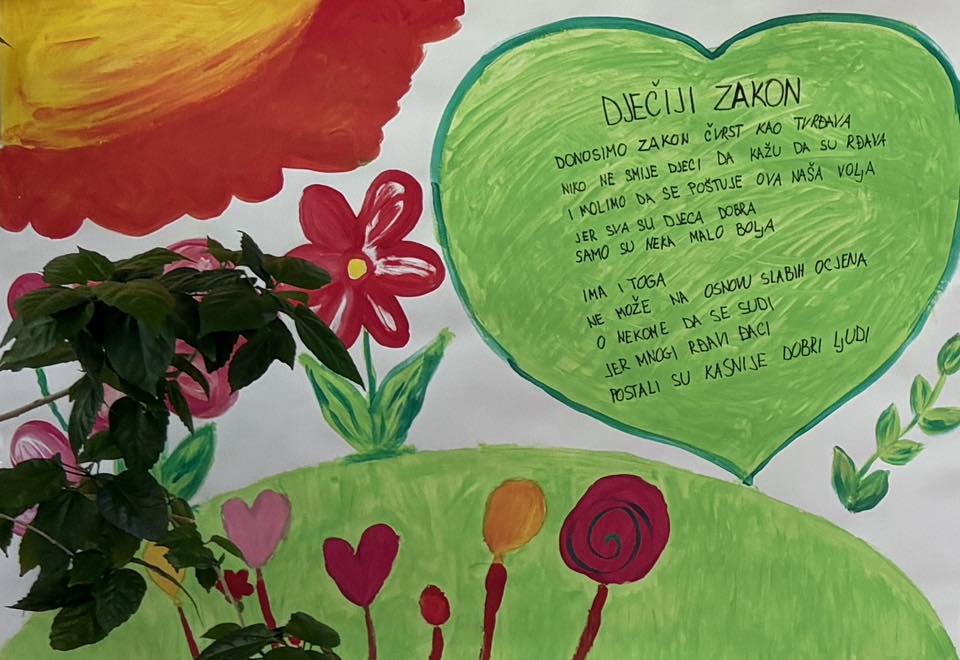 DJEČIJI ZAKON
DONOSIMO ZAKON ČVRST KAO TVRĐAVA
NIKO NE SMIJE DJECI DA KAŽU DA SU RĐAVA
I MOLIMO DA SE POŠTUJE OVA NAŠA VOLJA
JER SVA SU DJECA DOBRA
SAMO SU NEKA MALO BOLJA
IMA I TOGA
NE MOŽE NA OSNOVU SLABIH OCJENA
O NEKOME DA SE SUDI
JER MNOGI RĐAVI ĐACI
POSTALI SU KASNIJE DOBRI LJUDI